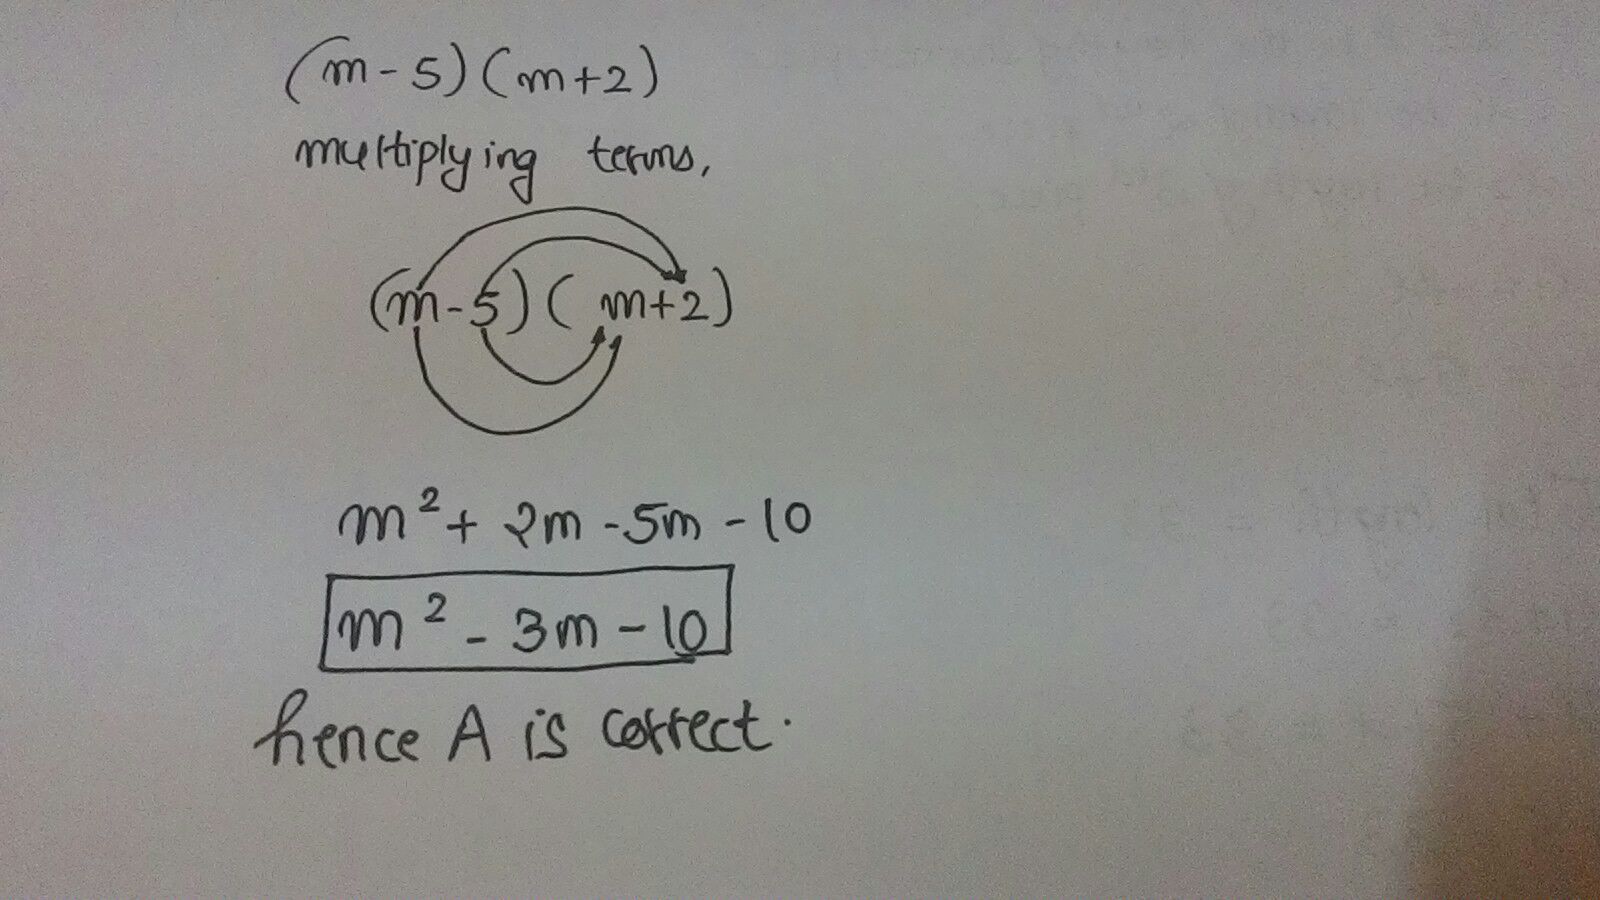 (m-5)(m+2)
multiplying terms,
(m-5)(m+2)
m²+ 2m -5m -10
m² - 3m - 10
hence A is correct.